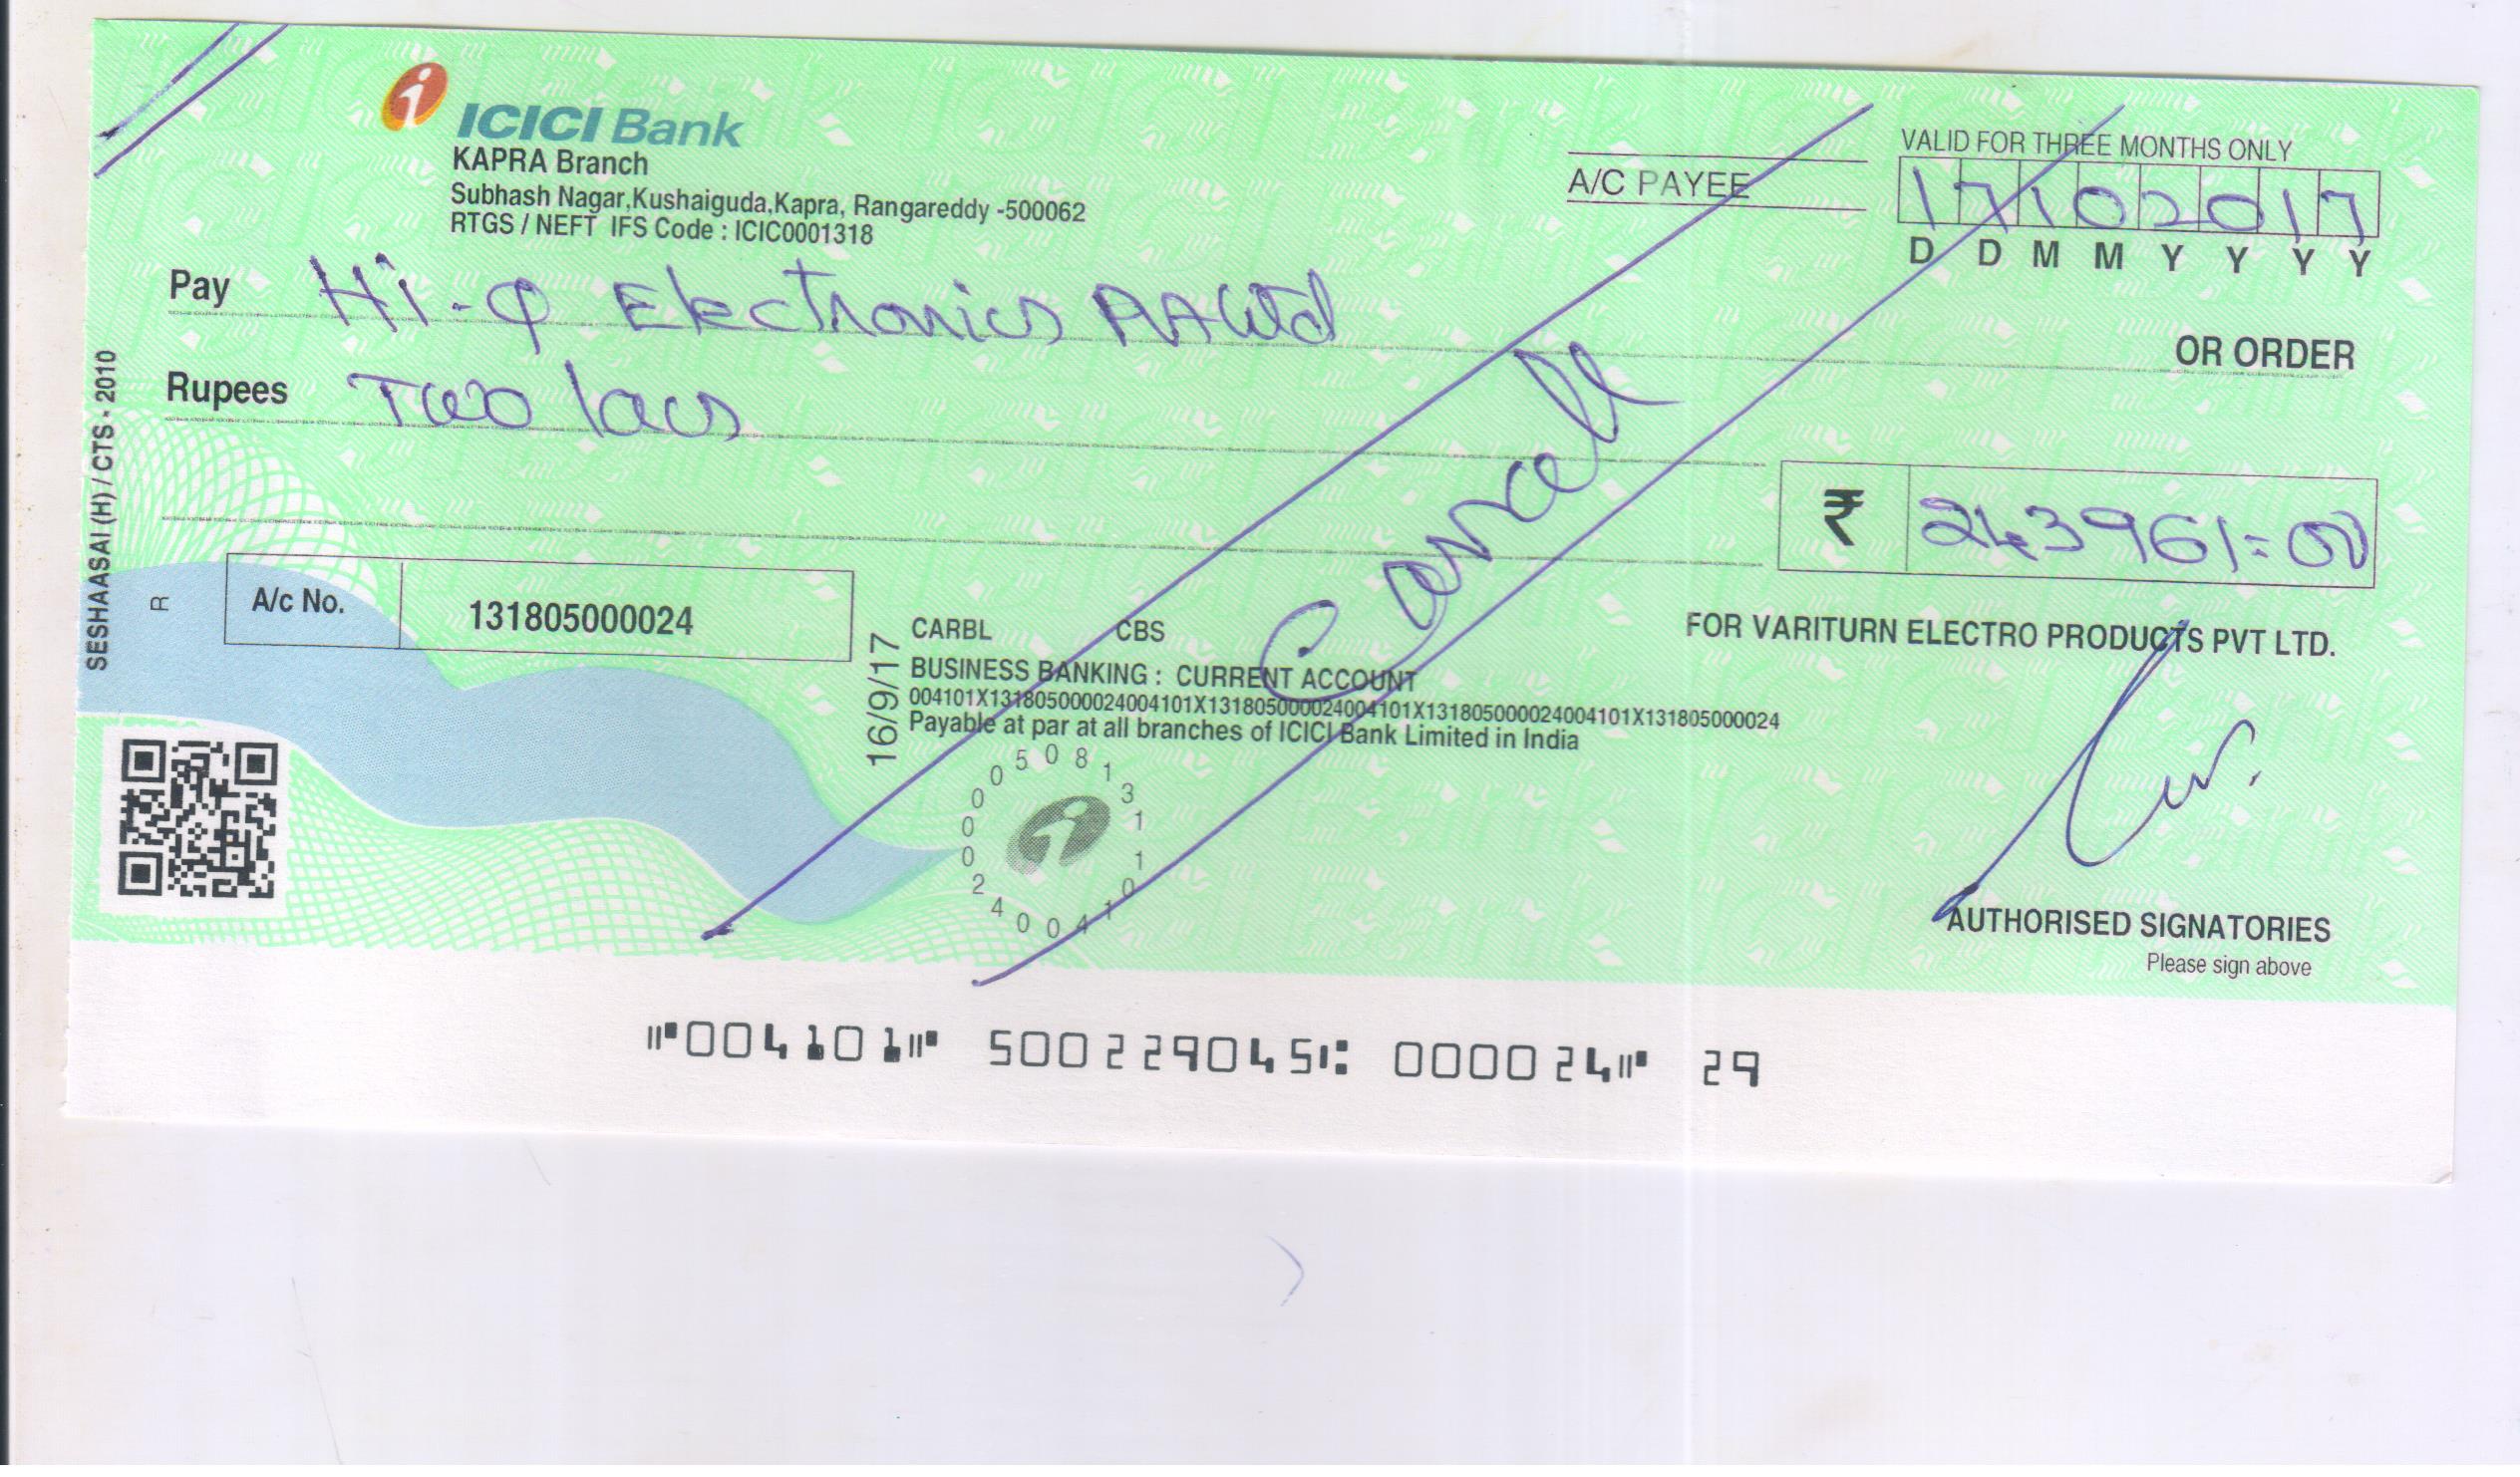 ICICI Bank
KAPRA Branch
Subhash Nagar,Kushaiguda,Kapra, Rangareddy -500062
RTGS / NEFT IFS Code : ICIC0001318
A/C PAYEE
VALID FOR THREE MONTHS ONLY
17102017
D D M M Y Y Y Y
Pay Hi-Q Electronics
OR ORDER
Rupees Two lacs
₹ 243961=00
Cancell
A/c No. 131805000024
SESHAASAI (H) / CTS - 2010
R
16/9/17
CARBL CBS
BUSINESS BANKING : CURRENT ACCOUNT
004101X131805000024004101X131805000024004101X131805000024004101X131805000024
Payable at par at all branches of ICICI Bank Limited in India
FOR VARITURN ELECTRO PRODUCTS PVT LTD.
000050813110140042
AUTHORISED SIGNATORIES
Please sign above
⑈004101⑈ 500229045⑆ 000024⑈ 29